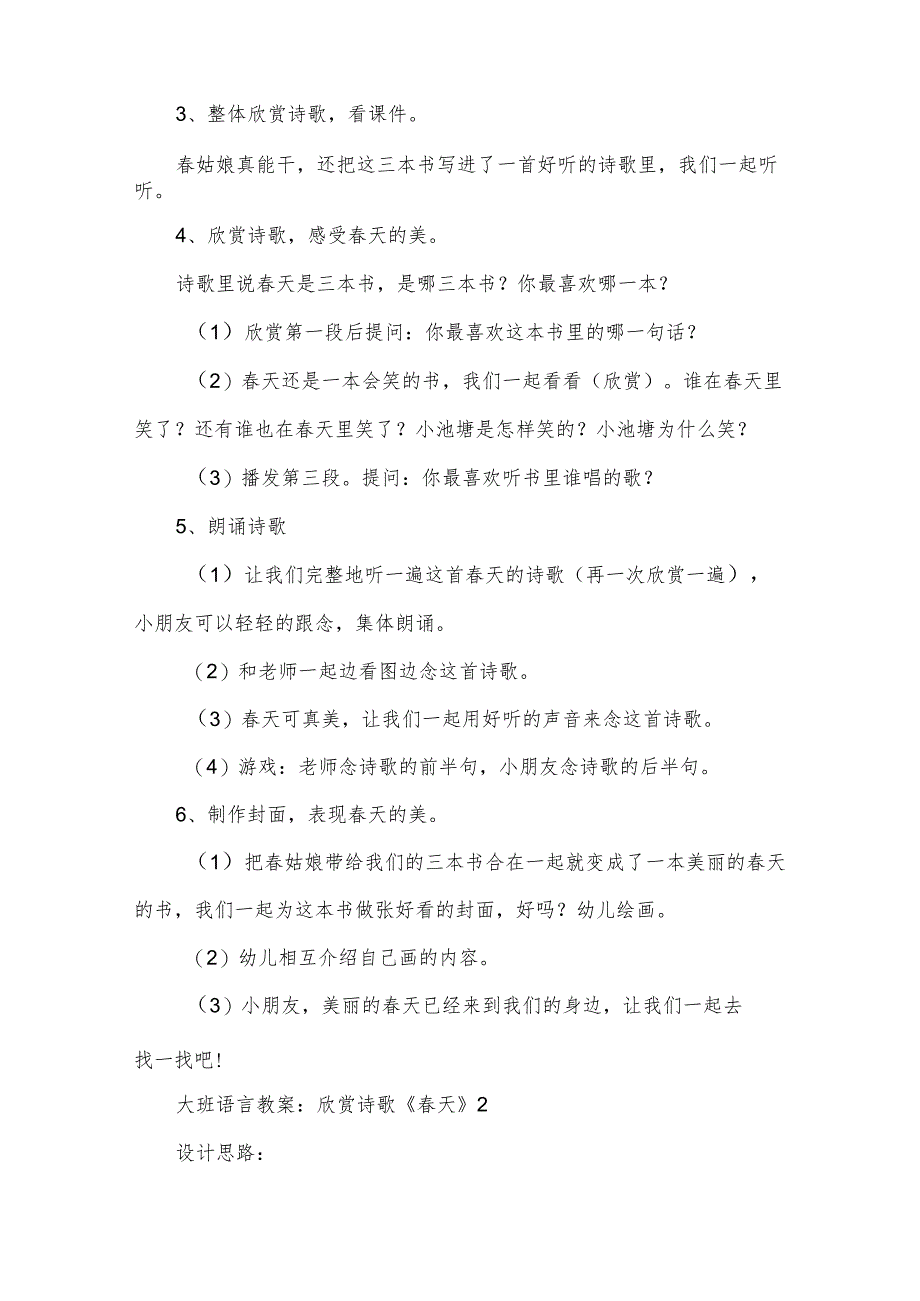 3、整体欣赏诗歌，看课件。
春姑娘真能干，还把这三本书写进了一首好听的诗歌里，我们一起听
听。
4、欣赏诗歌，感受春天的美。
诗歌里说春天是三本书，是哪三本书？你最喜欢哪一本？
（1）欣赏第一段后提问：你最喜欢这本书里的哪一句话？
（2）春天还是一本会笑的书，我们一起看看（欣赏）。谁在春天里
笑了？还有谁也在春天里笑了？小池塘是怎样笑的？小池塘为什么笑？
（3）播发第三段。提问：你最喜欢听书里谁唱的歌？
5、朗诵诗歌
（1）让我们完整地听一遍这首春天的诗歌（再一次欣赏一遍），
小朋友可以轻轻的跟念，集体朗诵。
（2）和老师一起边看图边念这首诗歌。
（3）春天可真美，让我们一起用好听的声音来念这首诗歌。
（4）游戏：老师念诗歌的前半句，小朋友念诗歌的后半句。
6、制作封面，表现春天的美。
（1）把春姑娘带给我们的三本书合在一起就变成了一本美丽的春天
的书，我们一起为这本书做张好看的封面，好吗？幼儿绘画。
（2）幼儿相互介绍自己画的内容。
（3）小朋友，美丽的春天已经来到我们的身边，让我们一起去
找一找吧！
大班语言教案：欣赏诗歌《春天》2
设计思路：